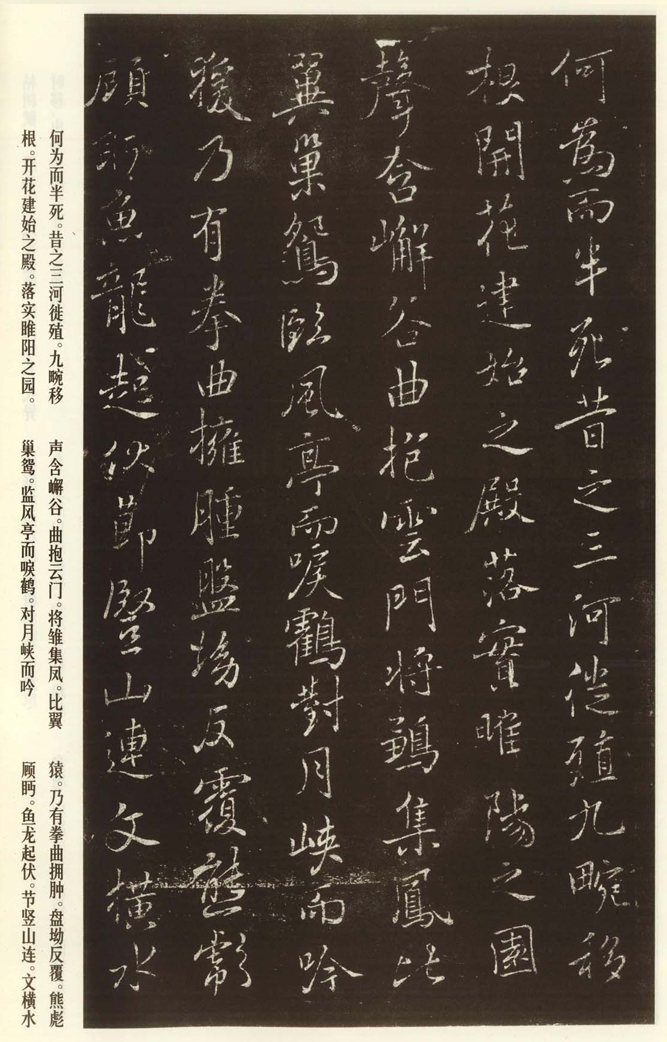 何為而半死昔之三河徙殖九畹移
根開花建始之殿落實睢陽之園
聲含嶰谷曲抱雲門將鶵集鳳比
翼巢鴛臨風亭而唳鶴對月峽而吟
猨乃有拳曲擁腫盤坳反覆熊彪
顧眄魚龍起伏節竪山連文橫水
何为而半死。昔之三河徙殖。九畹移
根。开花建始之殿。落实睢阳之园。
声含嶰谷。曲抱云门。将雏集凤。比翼
巢鸳。监风亭而唳鹤。对月峡而吟
猿。乃有拳曲拥肿。盘坳反覆。熊彪
顾眄。鱼龙起伏。节竖山连。文横水